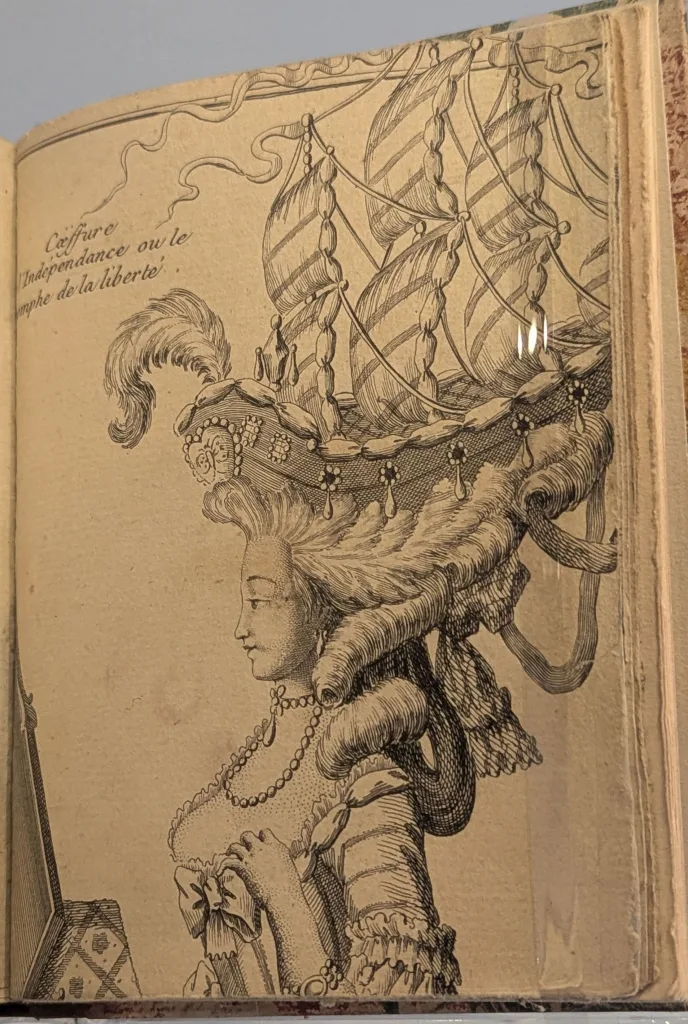 Cœffure
l'Indépendance ou le
omphe de la liberté.